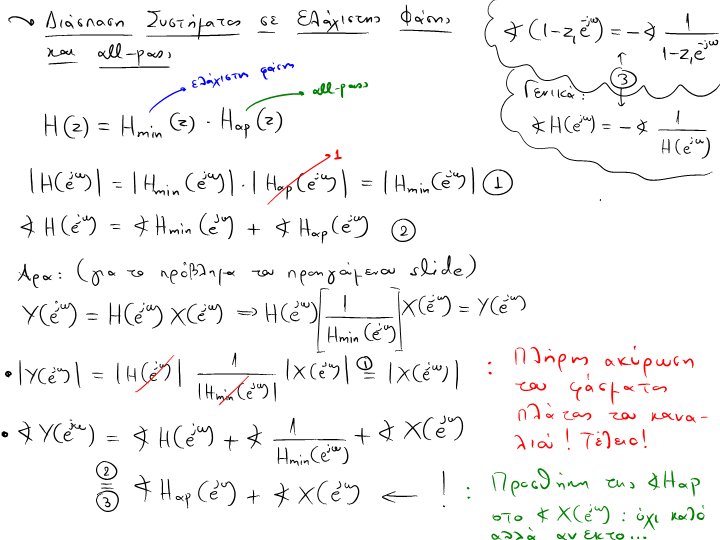 ~ Διάσπαση Συστήματος σε Ελάχιστης Φάσης
και all-pass
ελάχιστη φάση
all-pass
H(z) = H_min(z) · H_ap(z)
∢(1-z₁e^{-jω}) = -∢ 1/(1-z₁e^{-jω})
③
Γενικά:
∢H(e^{jω}) = -∢ 1/H(e^{jω})
1
|H(e^{jω})| = |H_min(e^{jω})| · |H_ap(e^{jω})| = |H_min(e^{jω})| ①
∢H(e^{jω}) = ∢H_min(e^{jω}) + ∢H_ap(e^{jω}) ②
Άρα: (για το πρόβλημα του προηγούμενου slide)
Y(e^{jω}) = H(e^{jω}) X(e^{jω}) ⇒ H(e^{jω}) [1/H_min(e^{jω})] X(e^{jω}) = Y(e^{jω})
• |Y(e^{jω})| = |H(e^{jω})| 1/|H_min(e^{jω})| |X(e^{jω})| ①= |X(e^{jω})|
: Πλήρης ακύρωση
του φάσματος
πλάτους του κανα-
λιού! Τέλειο!
• ∢Y(e^{jω}) = ∢H(e^{jω}) + ∢ 1/H_min(e^{jω}) + ∢X(e^{jω})
②=③ ∢H_ap(e^{jω}) + ∢X(e^{jω}) ← !
: Προσθήκη της ∢Hap
στο ∢X(e^{jω}) : όχι καλό
αλλά ανεκτό...